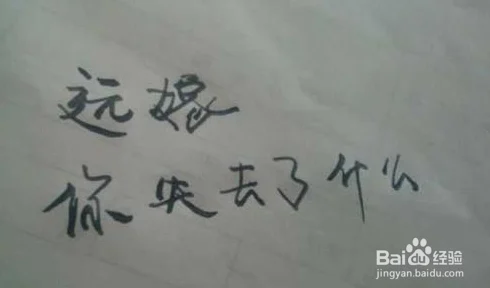 远嫁
你失去了什么
Baidu经验
jingyan.baidu.com